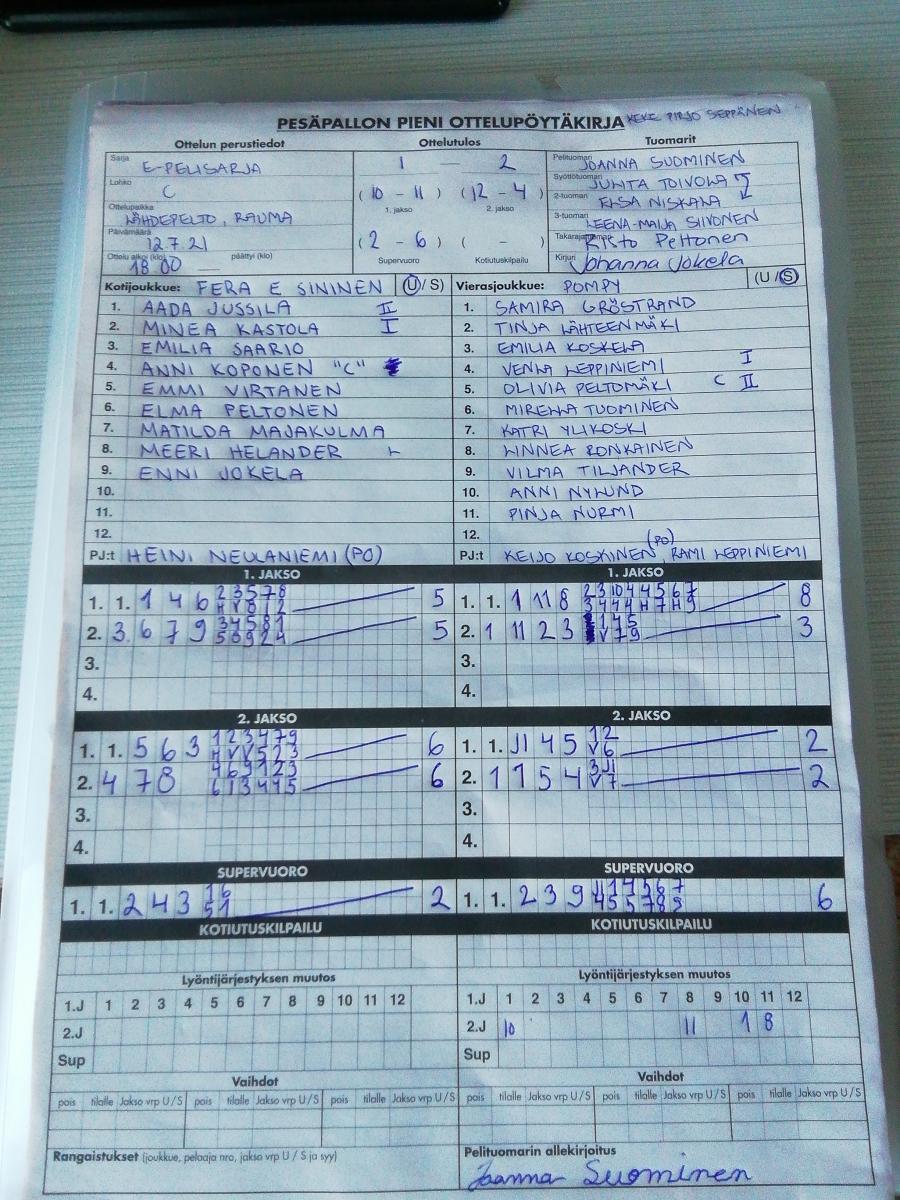 PESÄPALLON PIENI OTTELUPÖYTÄKIRJA KEKE PIRJO SEPPÄNEN
Ottelun perustiedot Ottelutulos Tuomarit
Sarja E-PELISARJA 1 — 2 Pelituomari JOANNA SUOMINEN
Lohko C (10 - 11) (12 - 4) Syöttötuomari JUNITA TOIVOLA
1. jakso 2. jakso 2-tuomari ELSA NISKALA
Ottelupaikka LÄHDEPELTO, RAUMA 3-tuomari LEENA-MAIJA SIIVONEN
Päivämäärä 12.7.21 (2 - 6) ( - ) Takarajatuomari Risto Peltonen
Ottelu alkoi (klo) 18.00 päättyi (klo) — Supervuoro Kotiutuskilpailu Kirjuri Johanna Jokela
Kotijoukkue: FERA E SININEN (U/S) Vierasjoukkue: POMPY (U/S)
1. AADA JUSSILA II 1. SAMIRA GRÖSTRAND
2. MINEA KASTOLA I 2. TINJA LÄHTEENMÄKI
3. EMILIA SAARIO 3. EMILIA KOSKELA
4. ANNI KOPONEN "C" 4. VENLA LEPPINIEMI I
5. EMMI VIRTANEN 5. OLIVIA PELTOMÄKI C II
6. ELMA PELTONEN 6. MIRELLA TUOMINEN
7. MATILDA MAJAKULMA 7. KATRI YLIKOSKI
8. MEERI HELANDER L 8. LINNEA RONKAINEN
9. ENNI JOKELA 9. VILMA TILJANDER
10. 10. ANNI NYLUND
11. 11. PINJA NURMI
12. 12.
PJ:t HEINI NEULANIEMI (PO) PJ:t KEIJO KOSKINEN (PO) RAMI LEPPINIEMI
1. JAKSO 1. JAKSO
1. 1. 1 4 6 2 3 5 7 8 5 1. 1. 1 11 8 2 3 10 4 4 5 6 7 8
2. 3 6 7 9 3 4 5 8 1 5 2. 1 11 2 3 1 4 5 3
3. 3.
4. 4.
2. JAKSO 2. JAKSO
1. 1. 5 6 3 1 2 3 4 7 9 6 1. 1. 11 4 5 1 2 2
H V V 5 2 3 V 6
2. 4 7 8 4 6 9 1 2 3 6 2. 1 7 5 4 3 11 2
6 1 3 4 4 5 V 7
3. 3.
4. 4.
SUPERVUORO SUPERVUORO
1. 1. 2 4 3 1 6 2 1. 1. 2 3 9 11 1 4 5 6 7 6
5 1 4 5 5 7 8 9
KOTIUTUSKILPAILU KOTIUTUSKILPAILU
Lyöntijärjestyksen muutos Lyöntijärjestyksen muutos
1.J 1 2 3 4 5 6 7 8 9 10 11 12 1.J 1 2 3 4 5 6 7 8 9 10 11 12
2.J 2.J 10 11 1 8
Sup Sup
Vaihdot Vaihdot
pois tilalle Jakso vrp U/S pois tilalle Jakso vrp U/S pois tilalle Jakso vrp U/S pois tilalle Jakso vrp U/S pois tilalle Jakso vrp U/S pois tilalle Jakso vrp U/S
Rangaistukset (joukkue, pelaaja nro, jakso vrp U / S ja syy) Pelituomarin allekirjoitus
Joanna Suominen